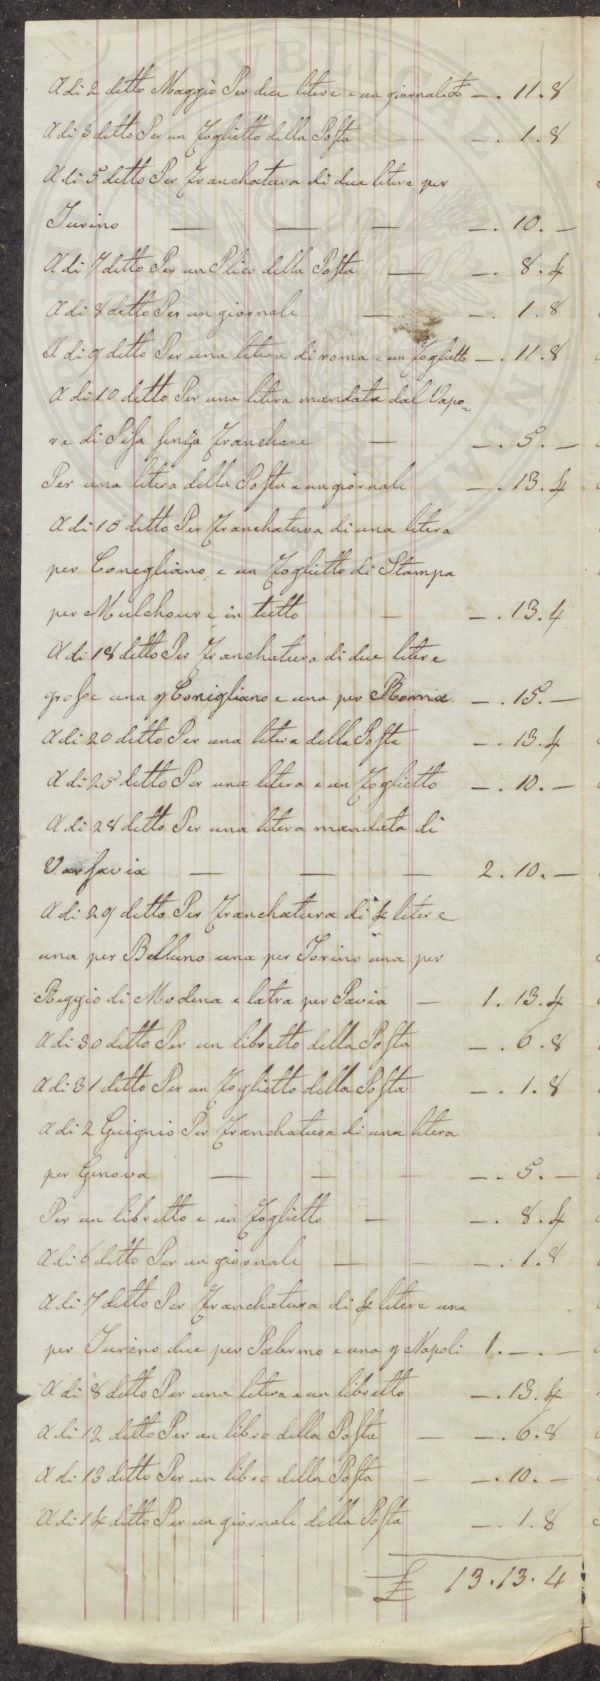 A di 2 ditto Maggio Per due litere e un giornale £ — . 11 . 8
A di 3 ditto Per un Foglietto della Posta — — . 1 . 8
A di 5 ditto Per Franchatura di due litere per
Turino — — — — . 10 . —
A di 7 ditto Per un Plico della Posta — — . 8 . 4
A di 8 ditto Per un giornale — — . 1 . 8
A di 9 ditto Per una litera di roma e un Foglietto — . 11 . 8
A di 10 ditto Per una litera mandata dal Vapo=
re di Pisa senza Franchare — — . 5 . —
Per una litera della Posta e un giornale — . 13 . 4
A di 15 ditto Per Franchatura di una litera
per Conegliano, e un Foglietto di Stampa
per Mulchoure in tutto — — . 13 . 4
A di 18 ditto Per Franchatura di due litere
grosse una p Conigliano e una per Roma — . 15 . —
A di 20 ditto Per una litera della Posta — . 13 . 4
A di 25 ditto Per una litera e un Foglietto — . 10 . —
A di 28 ditto Per una litera mandata di
Varsavia — — — 2 . 10 . —
A di 29 ditto Per Franchatura di 4 litere
una per Belluno una per Torino una per
Reggio di Modena e latra per Pavia — 1 . 13 . 4
A di 30 ditto Per un libretto della Posta — . 6 . 8
A di 31 ditto Per un Foglietto della Posta — . 1 . 8
A di 2 Guignio Per Franchatura di una litera
per Genova — — — — . 5 . —
Per un libretto e un Foglietto — — . 8 . 4
A di 6 ditto Per un giornale — — — . 1 . 8
A di 7 ditto Per Franchatura di 4 litere una
per Turino due per Palermo e una p Napoli 1 . — . —
A di 8 ditto Per una litera e un libretto — . 13 . 4
A di 12 ditto Per un libro della Posta — — . 6 . 8
A di 13 ditto Per un libro della Posta — — . 10 . —
A di 14 ditto Per un giornale della Posta — . 1 . 8
£ 13 . 13 . 4